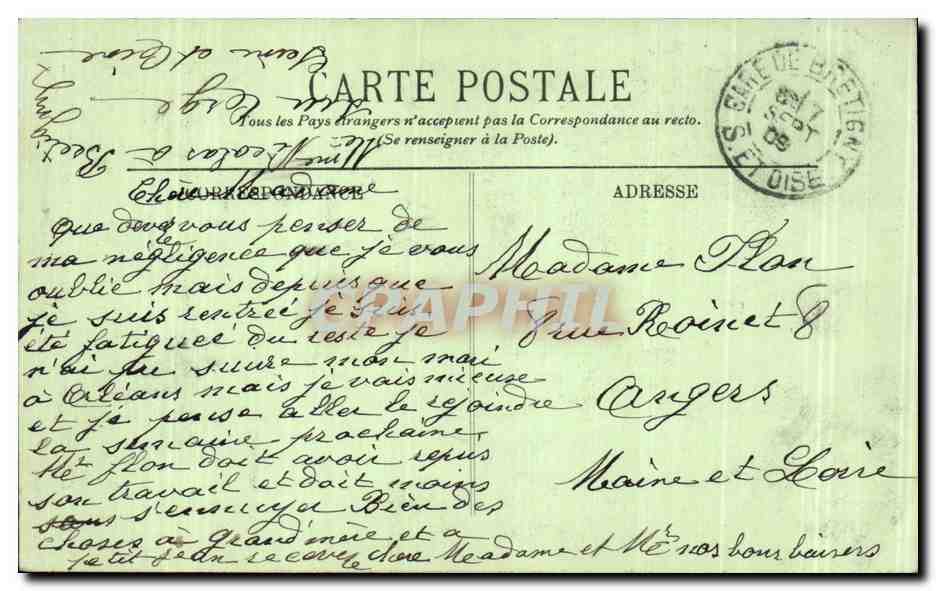 CARTE POSTALE
Tous les Pays étrangers n'acceptent pas la Correspondance au recto.
(Se renseigner à la Poste).
CORRESPONDANCE
ADRESSE
GARE DE BRETIGNY
S. ET OISE
Chère Madame
que devez vous penser de
ma négligence que je vous
oublie mais depuis que
je suis rentrée je suis
été fatiguée du reste je
n'ai pu suivre mon mari
à Orléans mais je vais mieuse
et je pense aller le rejoindre
la semaine prochaine
Mr flon doit avoir repris
son travail et doit moins
s'ennuyer Bien des
choses à grand'mère et a
petit Jean recevez chère Meadame et Mr nos bons baisers
Mme Nicolas à
sur Orge
Seine et Oise
Madame Flon
8 rue Roinet 8
Angers
Maine et Loire
CPAPHIL